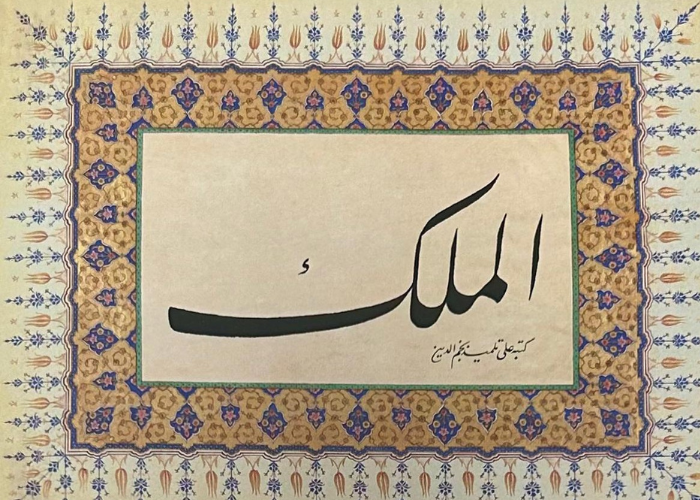 الملك
كتبه علي تلميذ نجم الدين